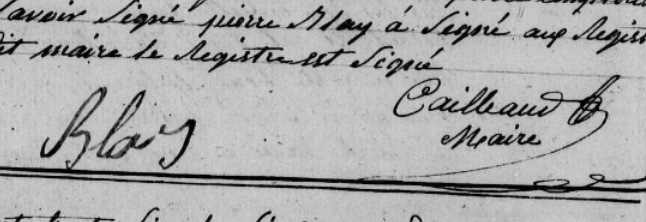 savoir signé pierre Blay á Signé aux Regist
dit maire le Registre est Signé
Cailleaud
Blay
Maire